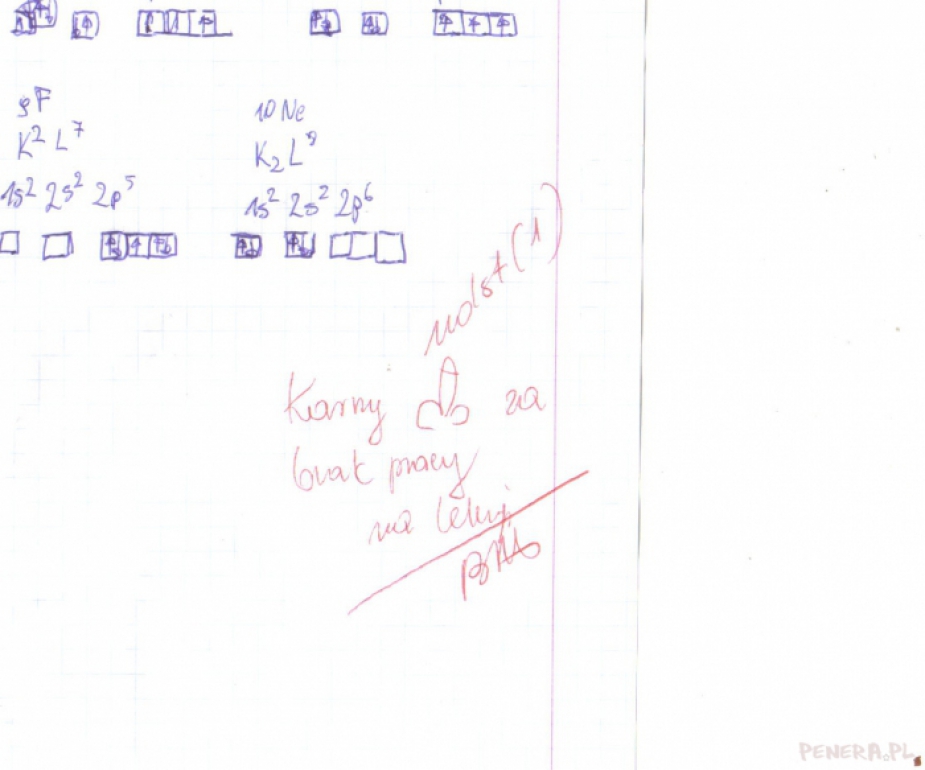 9F
K² L⁷
1s² 2s² 2p⁵
10Ne
K₂ L⁸
1s² 2s² 2p⁶
ndst (1)
Karny za
brak pracy
na lekcji
PENERA.PL